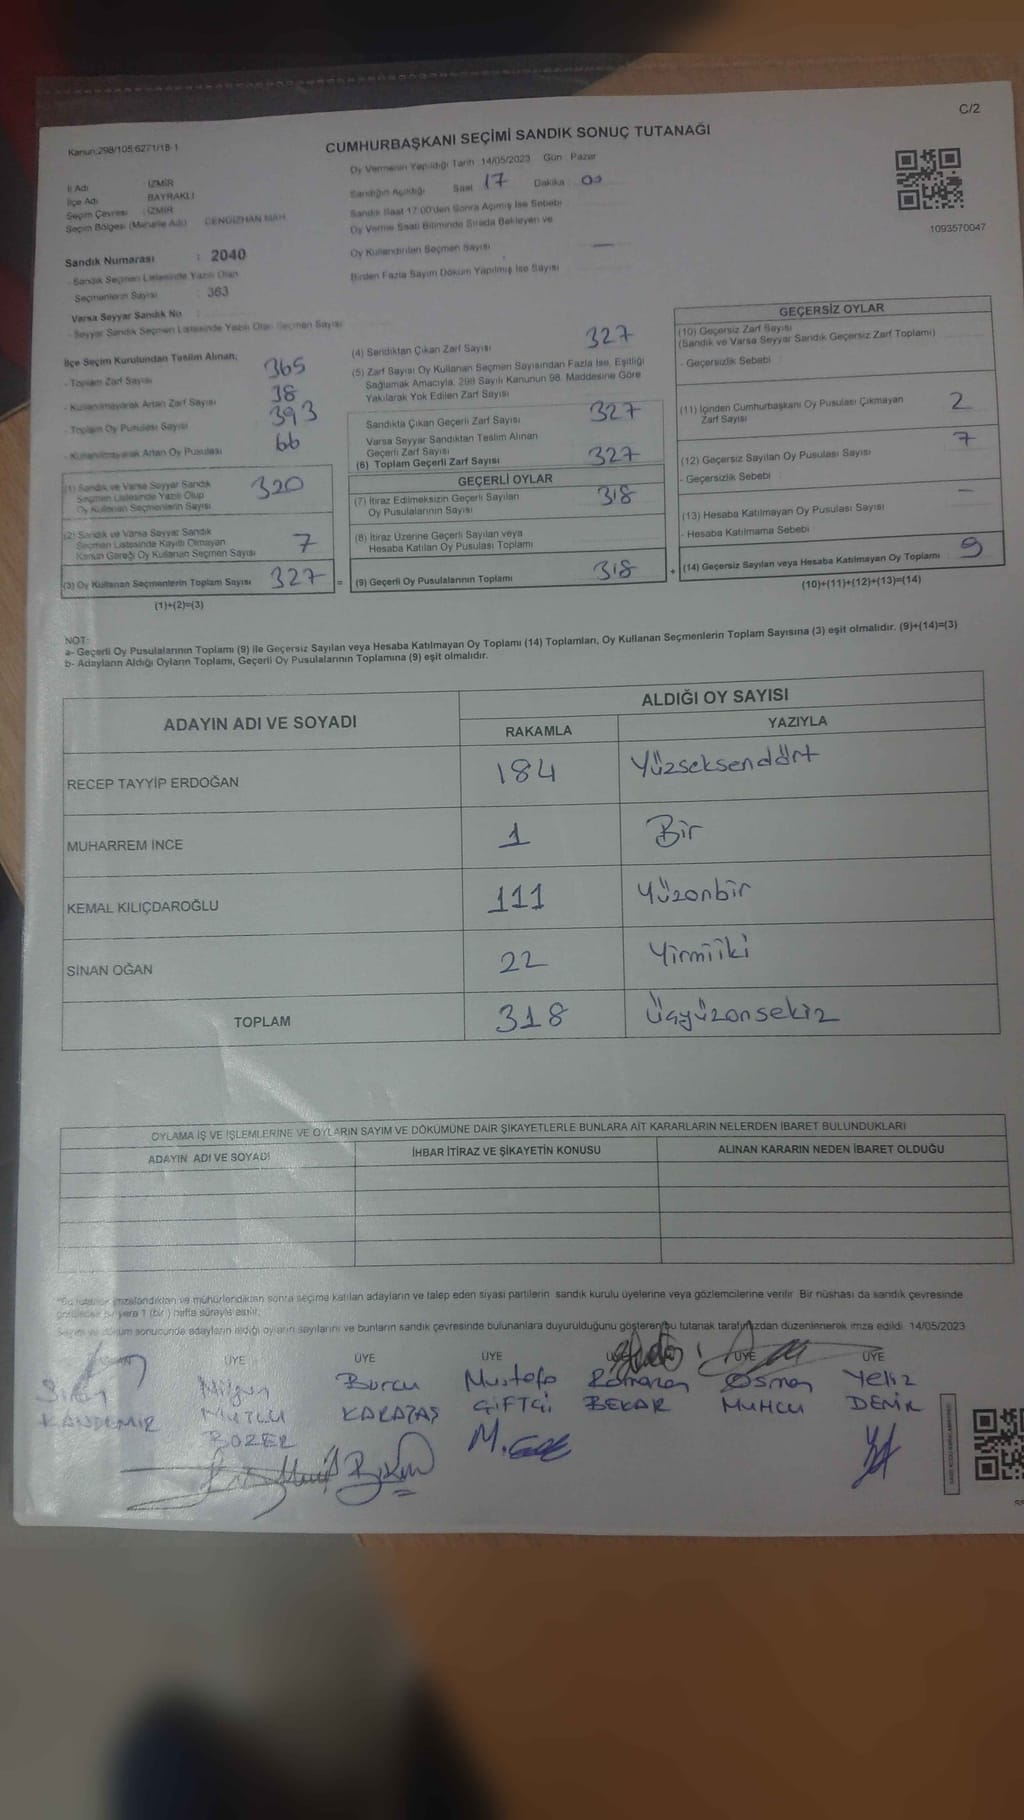 C/2
Kanun:298/105;6271/18-1
CUMHURBAŞKANI SEÇİMİ SANDIK SONUÇ TUTANAĞI
Oy Vermenin Yapıldığı Tarih 14/05/2023 Gün : Pazar
Sandığın Açıldığı Saat 17 Dakika 00
Sandık Saat 17:00'den Sonra Açılmış İse Sebebi
Oy Verme Saati Bitiminde Sırada Bekleyen ve
Oy Kullandırılan Seçmen Sayısı —
Birden Fazla Sayım Döküm Yapılmış İse Sayısı
1093570047
İl Adı : İZMİR
İlçe Adı : BAYRAKLI
Seçim Çevresi : İZMİR
Seçim Bölgesi (Mahalle Adı) CENGİZHAN MAH
Sandık Numarası : 2040
- Sandık Seçmen Listesinde Yazılı Olan
Seçmenlerin Sayısı : 363
Varsa Seyyar Sandık No
- Seyyar Sandık Seçmen Listesinde Yazılı Olan Seçmen Sayısı
İlçe Seçim Kurulundan Teslim Alınan;
- Toplam Zarf Sayısı 365
- Kullanılmayarak Artan Zarf Sayısı 38
- Toplam Oy Pusulası Sayısı 393
- Kullanılmayarak Artan Oy Pusulası 66
(1) Sandık ve Varsa Seyyar Sandık
Seçmen Listesinde Yazılı Olup
Oy Kullanan Seçmenlerin Sayısı 320
(2) Sandık ve Varsa Seyyar Sandık
Seçmen Listesinde Kayıtlı Olmayan
Kanun Gereği Oy Kullanan Seçmen Sayısı 7
(3) Oy Kullanan Seçmenlerin Toplam Sayısı 327 =
(1)+(2)=(3)
(4) Sandıktan Çıkan Zarf Sayısı 327
(5) Zarf Sayısı Oy Kullanan Seçmen Sayısından Fazla İse, Eşitliği
Sağlamak Amacıyla, 298 Sayılı Kanunun 98. Maddesine Göre
Yakılarak Yok Edilen Zarf Sayısı
Sandıkta Çıkan Geçerli Zarf Sayısı 327
Varsa Seyyar Sandıktan Teslim Alınan
Geçerli Zarf Sayısı
(6) Toplam Geçerli Zarf Sayısı 327
GEÇERLİ OYLAR
(7) İtiraz Edilmeksizin Geçerli Sayılan
Oy Pusulalarının Sayısı 318
(8) İtiraz Üzerine Geçerli Sayılan veya
Hesaba Katılan Oy Pusulası Toplamı
(9) Geçerli Oy Pusulalarının Toplamı 318 +
GEÇERSİZ OYLAR
(10) Geçersiz Zarf Sayısı
(Sandık ve Varsa Seyyar Sandık Geçersiz Zarf Toplamı)
- Geçersizlik Sebebi :
(11) İçinden Cumhurbaşkanı Oy Pusulası Çıkmayan
Zarf Sayısı 2
(12) Geçersiz Sayılan Oy Pusulası Sayısı 7
- Geçersizlik Sebebi :
(13) Hesaba Katılmayan Oy Pusulası Sayısı —
- Hesaba Katılmama Sebebi :
(14) Geçersiz Sayılan veya Hesaba Katılmayan Oy Toplamı 9
(10)+(11)+(12)+(13)=(14)
NOT:
a- Geçerli Oy Pusulalarının Toplamı (9) ile Geçersiz Sayılan veya Hesaba Katılmayan Oy Toplamı (14) Toplamları, Oy Kullanan Seçmenlerin Toplam Sayısına (3) eşit olmalıdır. (9)+(14)=(3)
b- Adayların Aldığı Oyların Toplamı, Geçerli Oy Pusulalarının Toplamına (9) eşit olmalıdır.
ADAYIN ADI VE SOYADI
ALDIĞI OY SAYISI
RAKAMLA YAZIYLA
RECEP TAYYİP ERDOĞAN 184 Yüzseksendört
MUHARREM İNCE 1 Bir
KEMAL KILIÇDAROĞLU 111 Yüzonbir
SİNAN OĞAN 22 Yirmiiki
TOPLAM 318 Üçyüzonsekiz
OYLAMA İŞ VE İŞLEMLERİNE VE OYLARIN SAYIM VE DÖKÜMÜNE DAİR ŞİKAYETLERLE BUNLARA AİT KARARLARIN NELERDEN İBARET BULUNDUKLARI
ADAYIN ADI VE SOYADI İHBAR İTİRAZ VE ŞİKAYETİN KONUSU ALINAN KARARIN NEDEN İBARET OLDUĞU
imzalandıktan ve mühürlendikten sonra seçime katılan adayların ve talep eden siyasi partilerin sandık kurulu üyelerine veya gözlemcilerine verilir. Bir nüshası da sandık çevresinde
bir yere 1 (bir) hafta süreyle asılır.
Sayım ve döküm sonucunda adayların aldığı oyların sayılarını ve bunların sandık çevresinde bulunanlara duyurulduğunu gösteren bu tutanak tarafımızdan düzenlenerek imza edildi. 14/05/2023
ÜYE ÜYE ÜYE ÜYE ÜYE
KANDEMİR
Nilgün MUTLU BOZER
Burcu KARATAŞ
Mustafa ÇİFTÇİ
Ramazan BEKAR
Osman MUHCU
Yeliz DEMİR